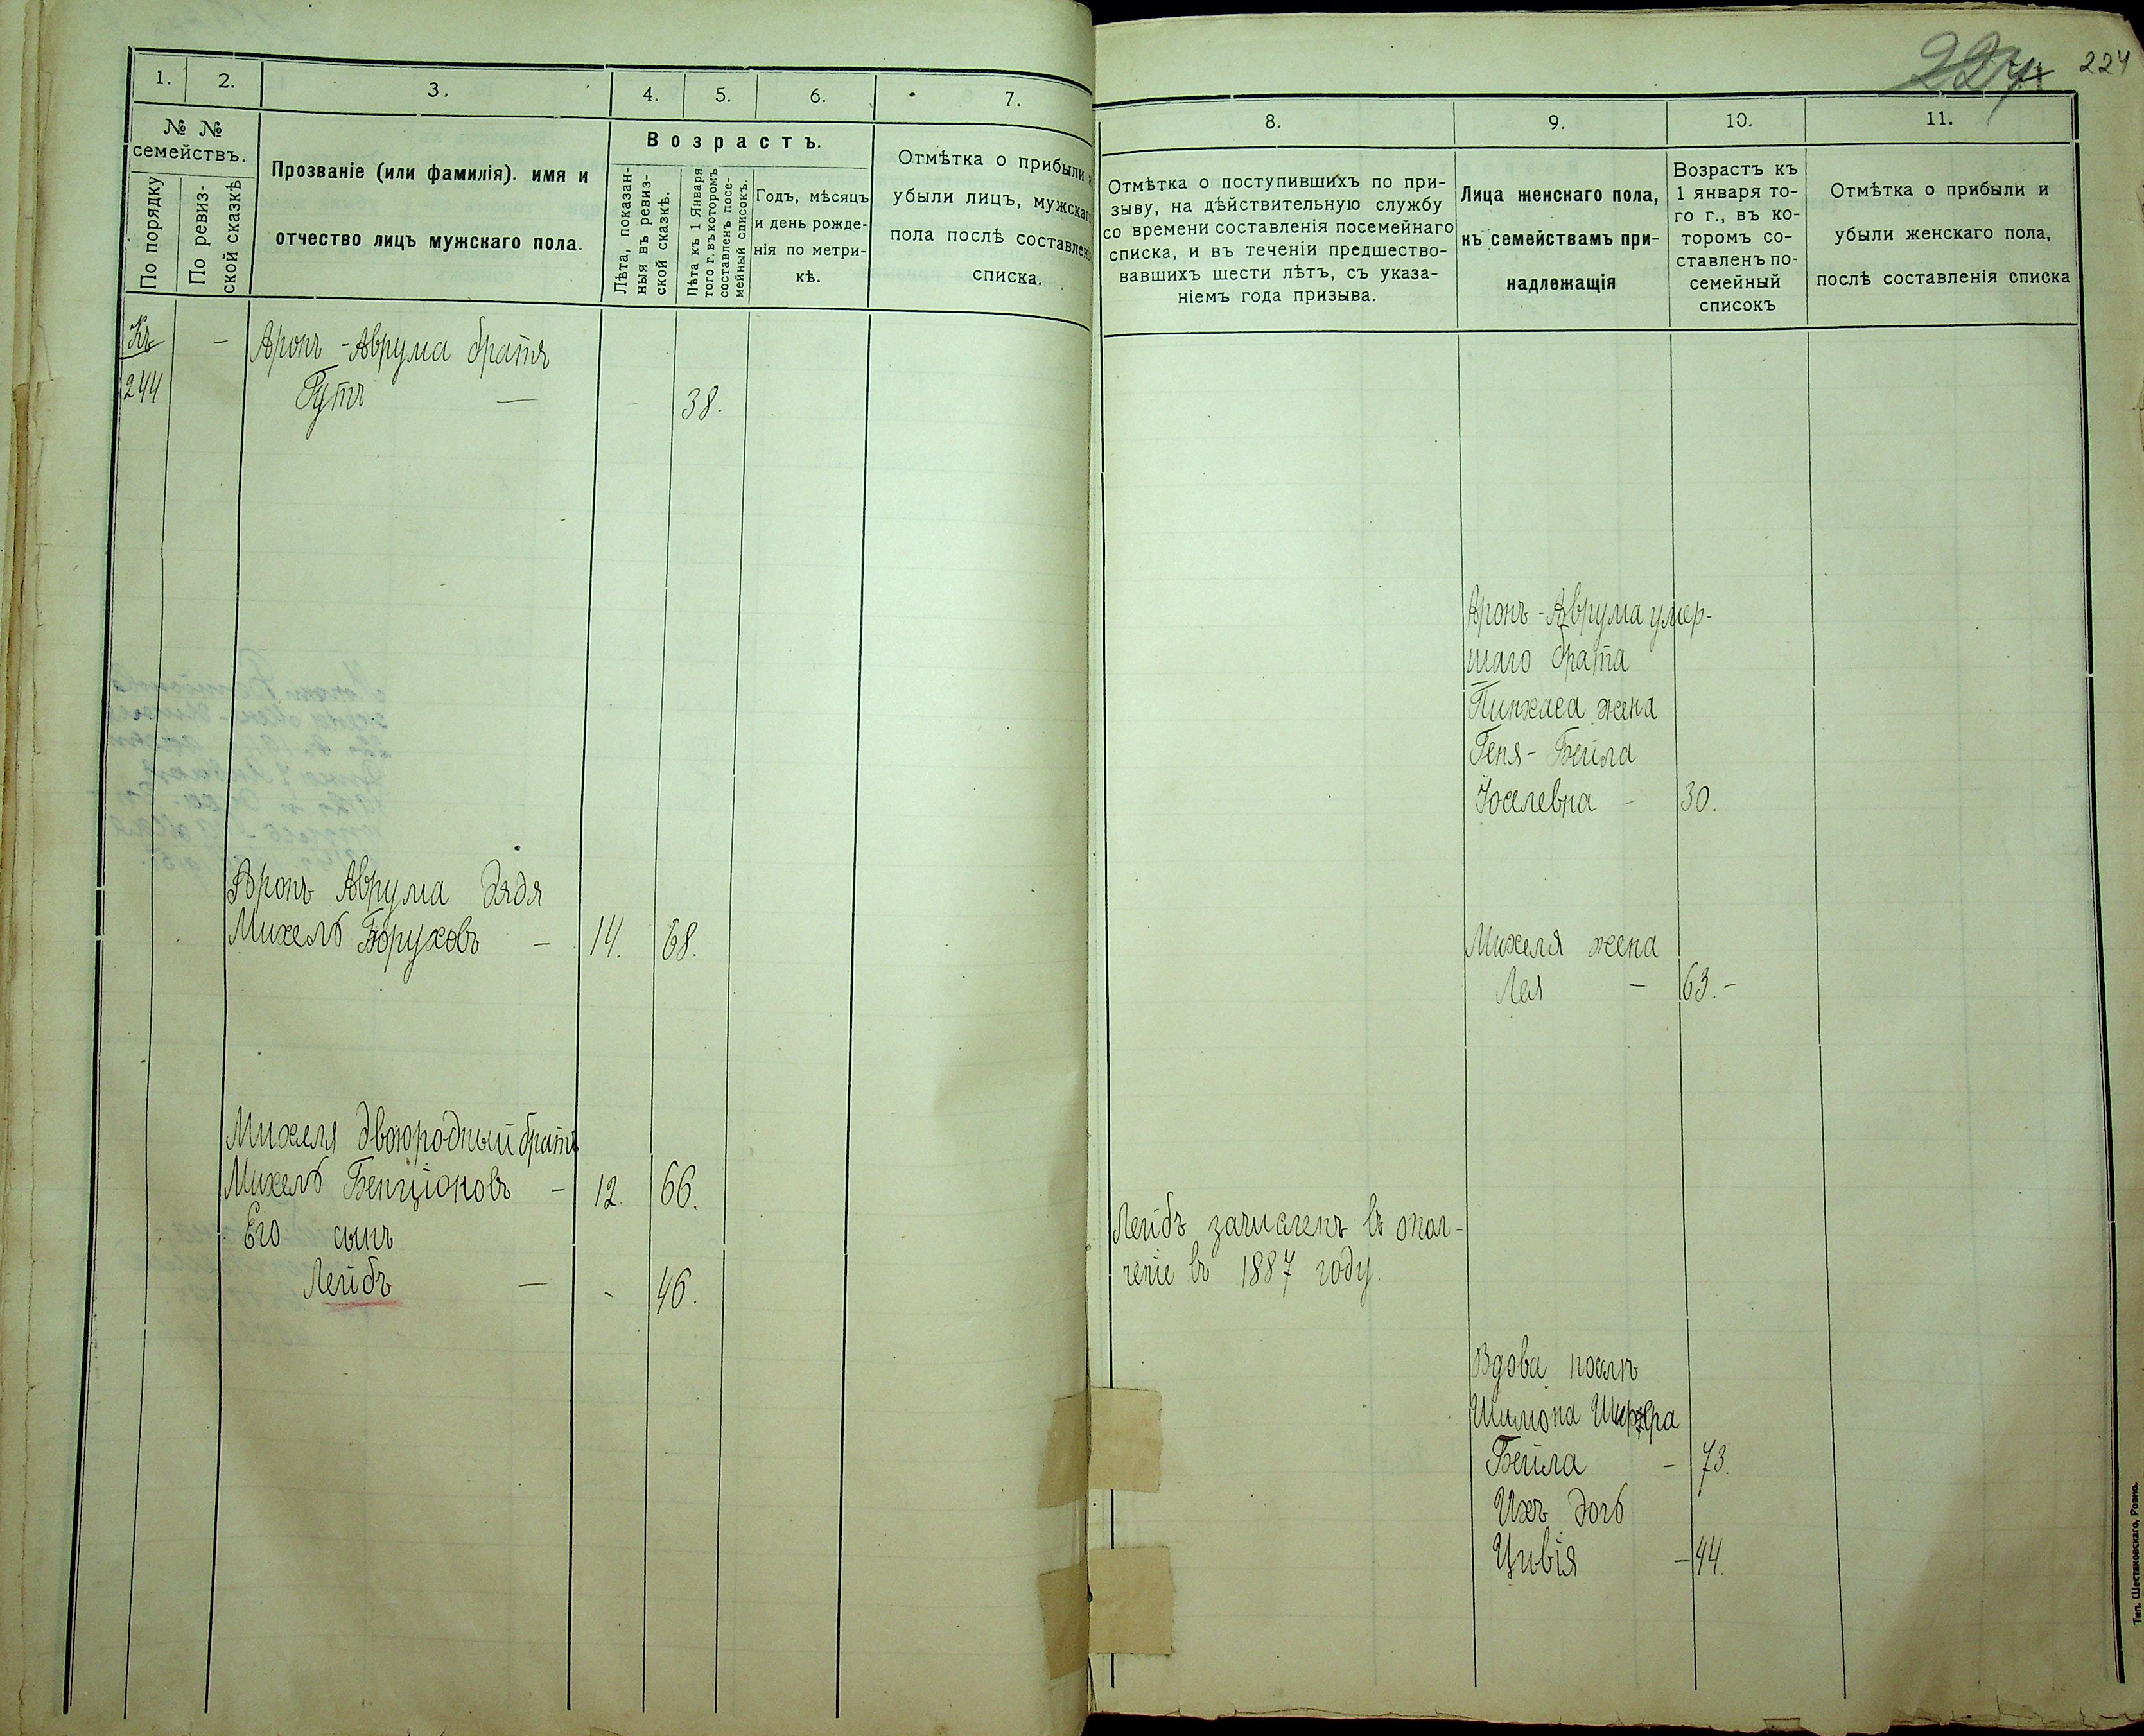 224
1. 2. 3. 4. 5. 6. 7.
№ № семействъ.
По порядку
По ревиз-
ской сказкѣ
Прозваніе (или фамилія). имя и
отчество лицъ мужскаго пола.
Возрастъ.
Лѣта, показан-
ныя въ ревиз-
ской сказкѣ.
Лѣта къ 1 Января
того г. въ которомъ
составленъ посе-
мейный списокъ.
Годъ, мѣсяцъ
и день рожде-
нія по метри-
кѣ.
Отмѣтка о прибыли
убыли лицъ, мужскаг
пола послѣ составлен
списка.
Къ
244
- Аронъ-Аврума братя
Гутъ — - 38.
Аронъ Аврума дядя
Михель Боруховъ - 14. 68.
Михеля двоюродный братъ
Михель Бенціоновъ - 12. 66.
Его сынъ
Лейбъ — - 46.
8. 9. 10. 11.
Отмѣтка о поступившихъ по при-
зыву, на дѣйствительную службу
со времени составленія посемейнаго
списка, и въ теченіи предшество-
вавшихъ шести лѣтъ, съ указа-
ніемъ года призыва.
Лица женскаго пола,
къ семействамъ при-
надлежащія
Возрастъ къ
1 января то-
го г., въ ко-
торомъ со-
ставленъ по-
семейный
списокъ
Отмѣтка о прибыли и
убыли женскаго пола,
послѣ составленія списка
Аронъ-Аврума умер-
шаго брата
Пинхаса жена
Геня-Бейла
Іоселевна - 30.
Михеля жена
Лея - 63.-
Лейбъ зачисленъ въ опол-
ченіе въ 1887 году.
Вдова послѣ
Шимона
Бейла - 73.
Ихъ дочь
Цивія - 44.
Тип. Шестаковскаго, Ровно.